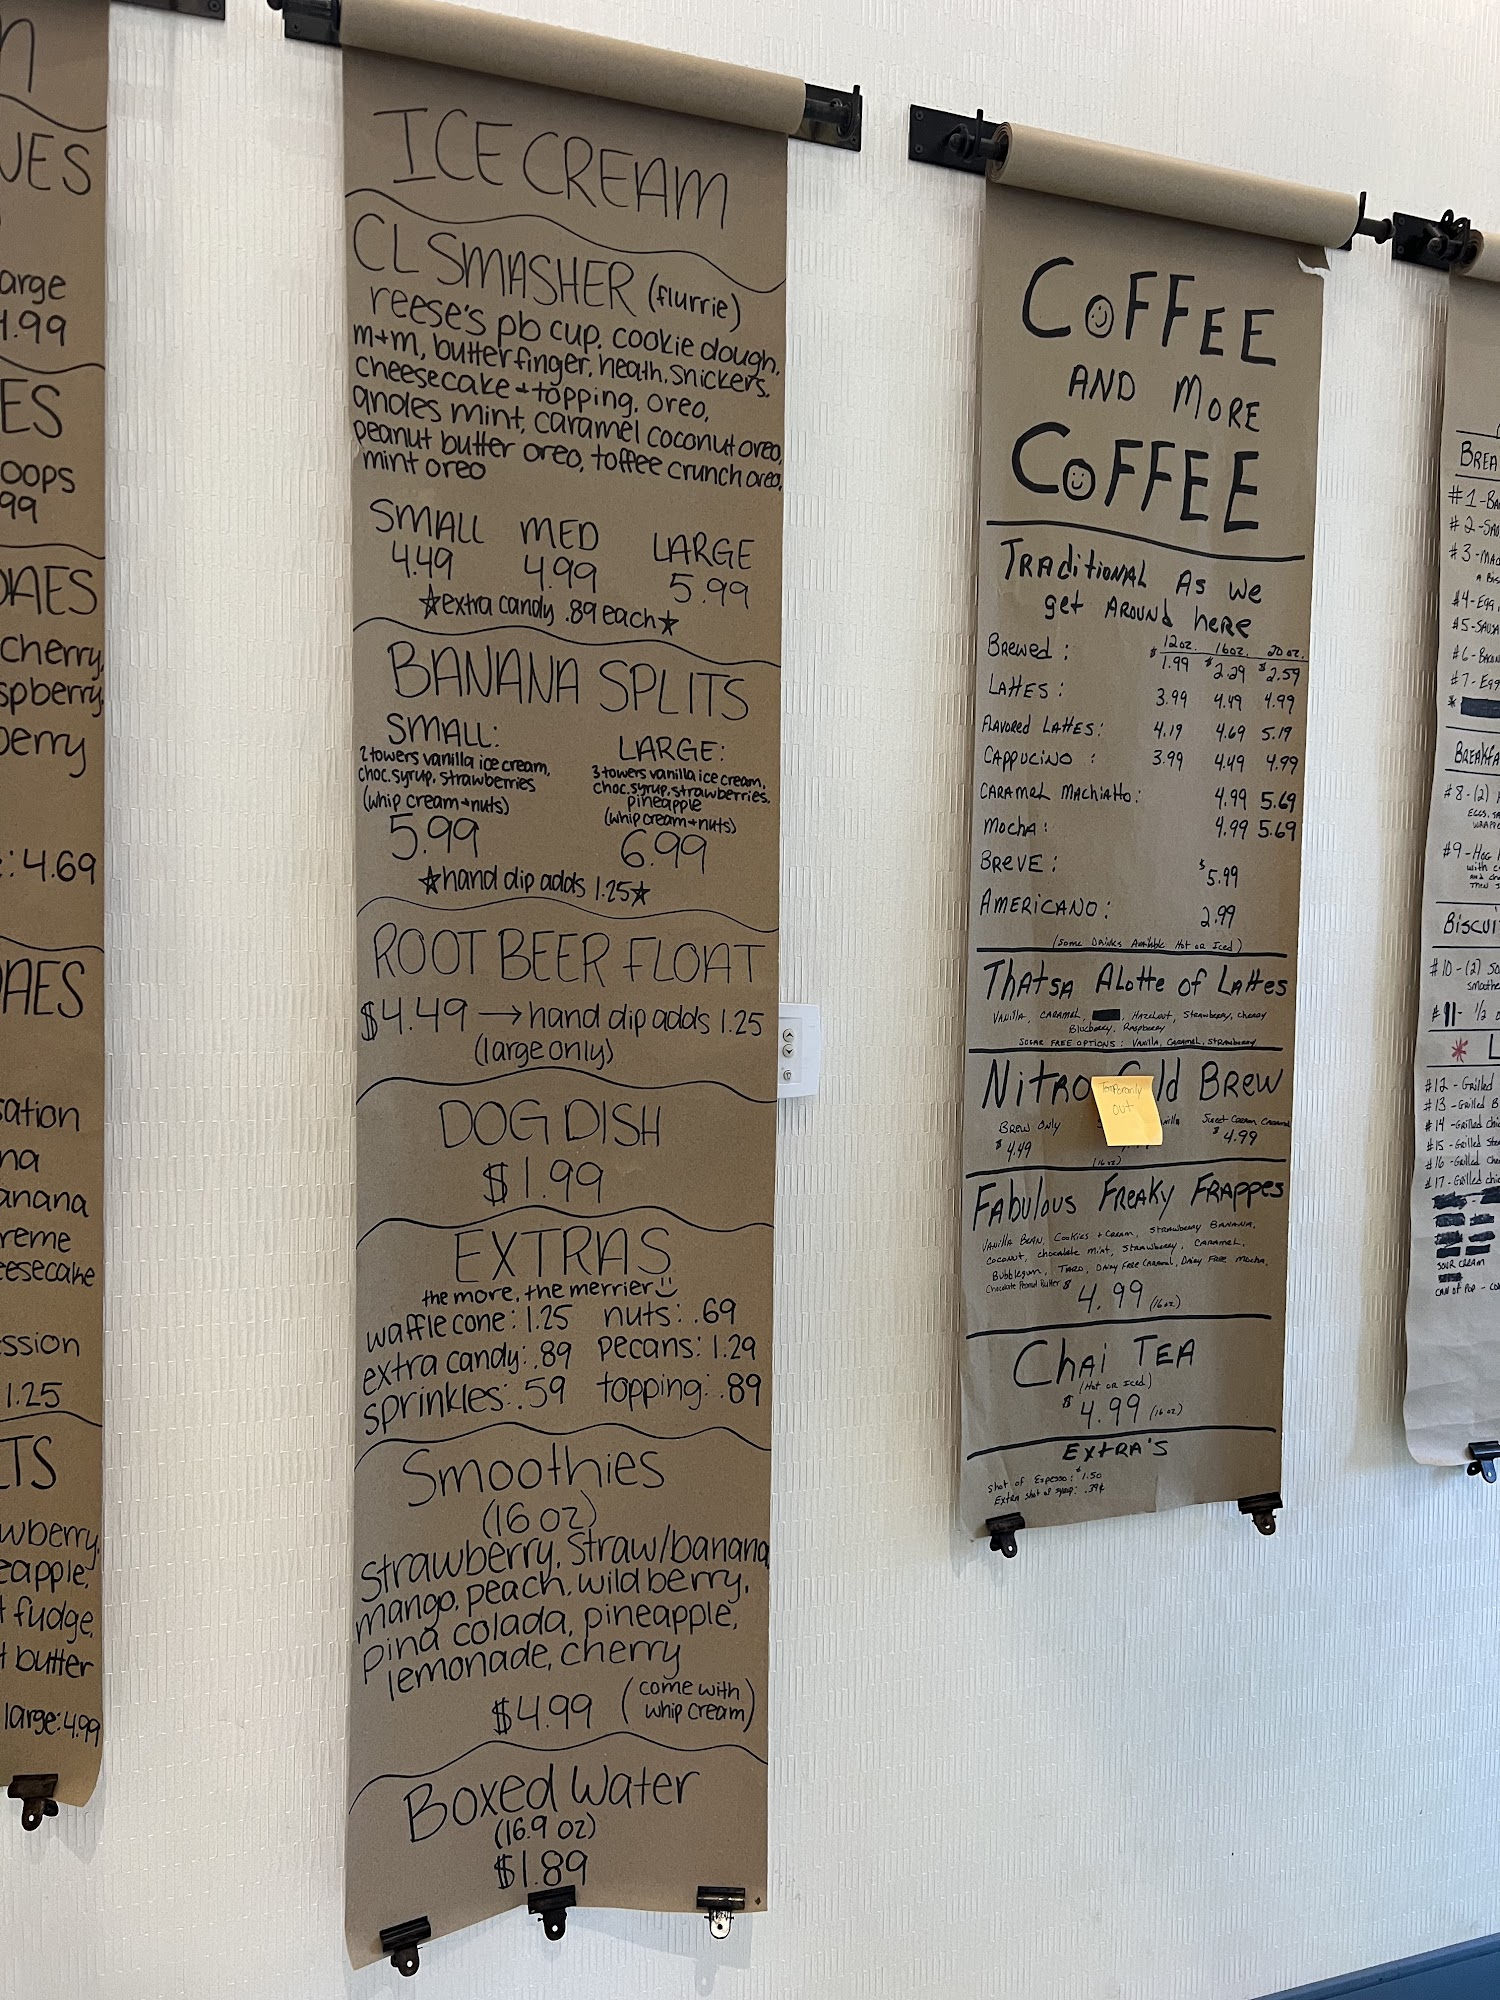 n
UES
arge
4.99
ES
oops
99
DAES
cherry,
spberry,
berry
: 4.69
DAES
sation
na
anana
reme
eesecake
ssion
1.25
TS
wberry,
eapple,
t fudge,
t butter
large: 4.99
ICE CREAM
CL SMASHER (flurrie)
reese's pb cup, cookie dough,
m+m, butterfinger, heath, snickers,
cheesecake + topping, oreo,
andes mint, caramel coconut oreo,
peanut butter oreo, toffee crunch oreo,
mint oreo
SMALL MED LARGE
4.49 4.99 5.99
☆extra candy .89 each☆
BANANA SPLITS
SMALL:
2 towers vanilla ice cream,
choc. syrup, strawberries
(whip cream + nuts)
5.99
LARGE:
3 towers vanilla ice cream,
choc. syrup, strawberries,
pineapple
(whip cream + nuts)
6.99
☆hand dip adds 1.25☆
ROOT BEER FLOAT
$4.49 → hand dip adds 1.25
(large only)
DOG DISH
$1.99
EXTRAS
the more, the merrier
waffle cone: 1.25 nuts: .69
extra candy: .89 pecans: 1.29
sprinkles: .59 topping: .89
Smoothies
(16 oz)
strawberry, straw/banana,
mango, peach, wildberry,
pina colada, pineapple,
lemonade, cherry
$4.99 (come with
whip cream)
Boxed Water
(16.9 oz)
$1.89
COFFEE
AND MORE
COFFEE
Traditional As we
get Around here
12oz. 16oz. 20oz.
Brewed: $1.99 $2.29 $2.59
Lattes: 3.99 4.49 4.99
Flavored Lattes: 4.19 4.69 5.19
Cappucino: 3.99 4.49 4.99
Caramel Machiatto: 4.99 5.69
Mocha: 4.99 5.69
Breve: $5.99
Americano: 2.99
(Some Drinks Available Hot or Iced)
Thatsa Alotte of Lattes
Vanilla, Caramel, Hazelnut, Strawberry, Cherry
Blueberry, Raspberry
Sugar Free Options: Vanilla, Caramel, Strawberry
Nitro Cold Brew
Temporarily
out
Brew Only
$4.49
nilla
(16oz)
Sweet Cream Caramel
$4.99
Fabulous Freaky Frappes
Vanilla Bean, Cookies + Cream, Strawberry Banana,
Coconut, Chocolate Mint, Strawberry, Caramel,
Bubblegum, Taro, Dairy Free Caramel, Dairy Free Mocha,
Chocolate Peanut Butter $4.99 (16oz)
Chai Tea
(Hot or Iced)
$4.99 (16oz)
Extra's
Shot of Espesso: $1.50
Extra shot of syrup: .39¢
Brea
#1-Ba
#2-Sau
#3-Mad
A Bis
#4-Egg,
#5-Sausa
#6-Bacon
#7-Egg
*
Breakfa
#8-(2)
Eggs,
wrapp
#9-Hog
with
and
Then
Biscui
#10-(2) So
smothe
#11- 1/2 o
* L
#12-Grilled
#13-Grilled B
#14-Grilled Chic
#15-Grilled Ste
#16-Grilled Che
#17-Grilled Chic
Sour Cream
Can of Pop - Co